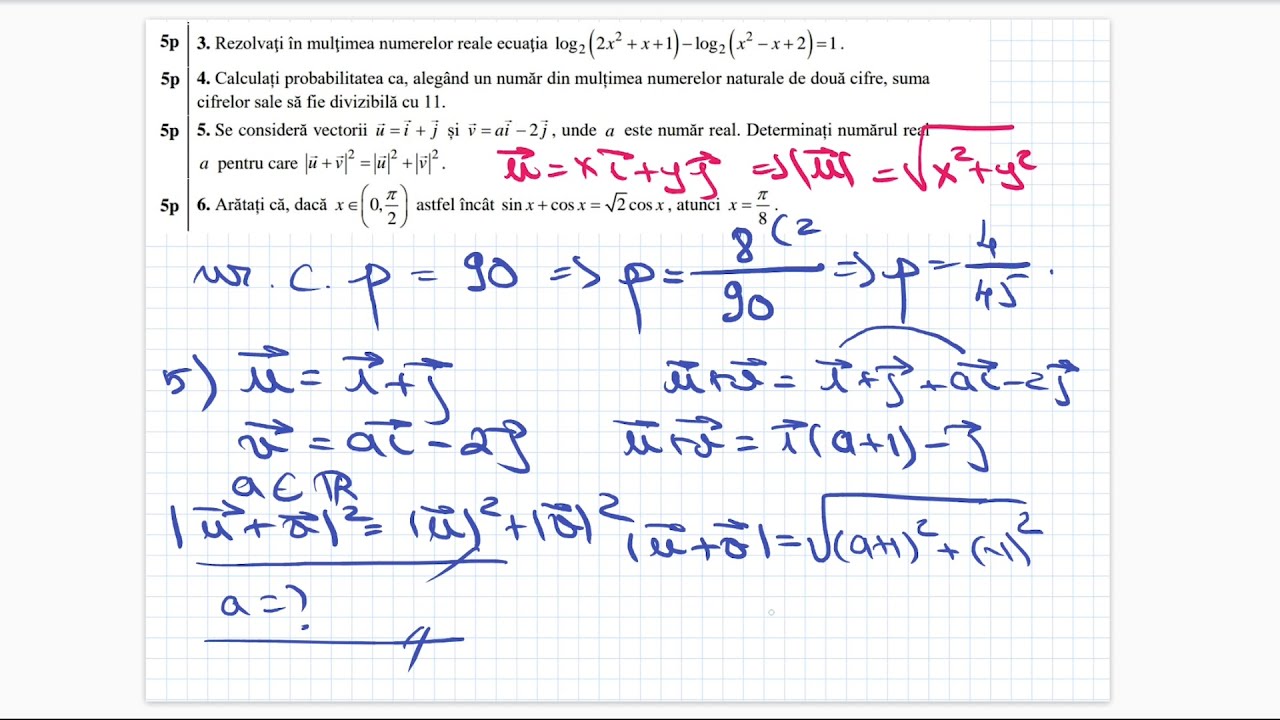 5p 3. Rezolvați în mulțimea numerelor reale ecuația log₂(2x² + x + 1) − log₂(x² − x + 2) = 1.
5p 4. Calculați probabilitatea ca, alegând un număr din mulțimea numerelor naturale de două cifre, suma
cifrelor sale să fie divizibilă cu 11.
5p 5. Se consideră vectorii u⃗ = i⃗ + j⃗ și v⃗ = ai⃗ − 2j⃗, unde a este număr real. Determinați numărul real
a pentru care |u⃗ + v⃗|² = |u⃗|² + |v⃗|².
u⃗ = xi⃗ + yj⃗ ⇒ |u⃗| = √(x² + y²)
5p 6. Arătați că, dacă x ∈ (0, π/2) astfel încât sin x + cos x = √2 cos x, atunci x = π/8.
nr. c. p = 90 ⇒ p = 8/90 (2 ⇒ p = 4/45.
5) u⃗ = i⃗ + j⃗
v⃗ = ai⃗ − 2j⃗
a ∈ ℝ
|u⃗ + v⃗|² = |u⃗|² + |v⃗|²
a = ?
u⃗ + v⃗ = i⃗ + j⃗ + ai⃗ − 2j⃗
u⃗ + v⃗ = i⃗(a+1) − j⃗
|u⃗ + v⃗| = √((a+1)² + (−1)²)